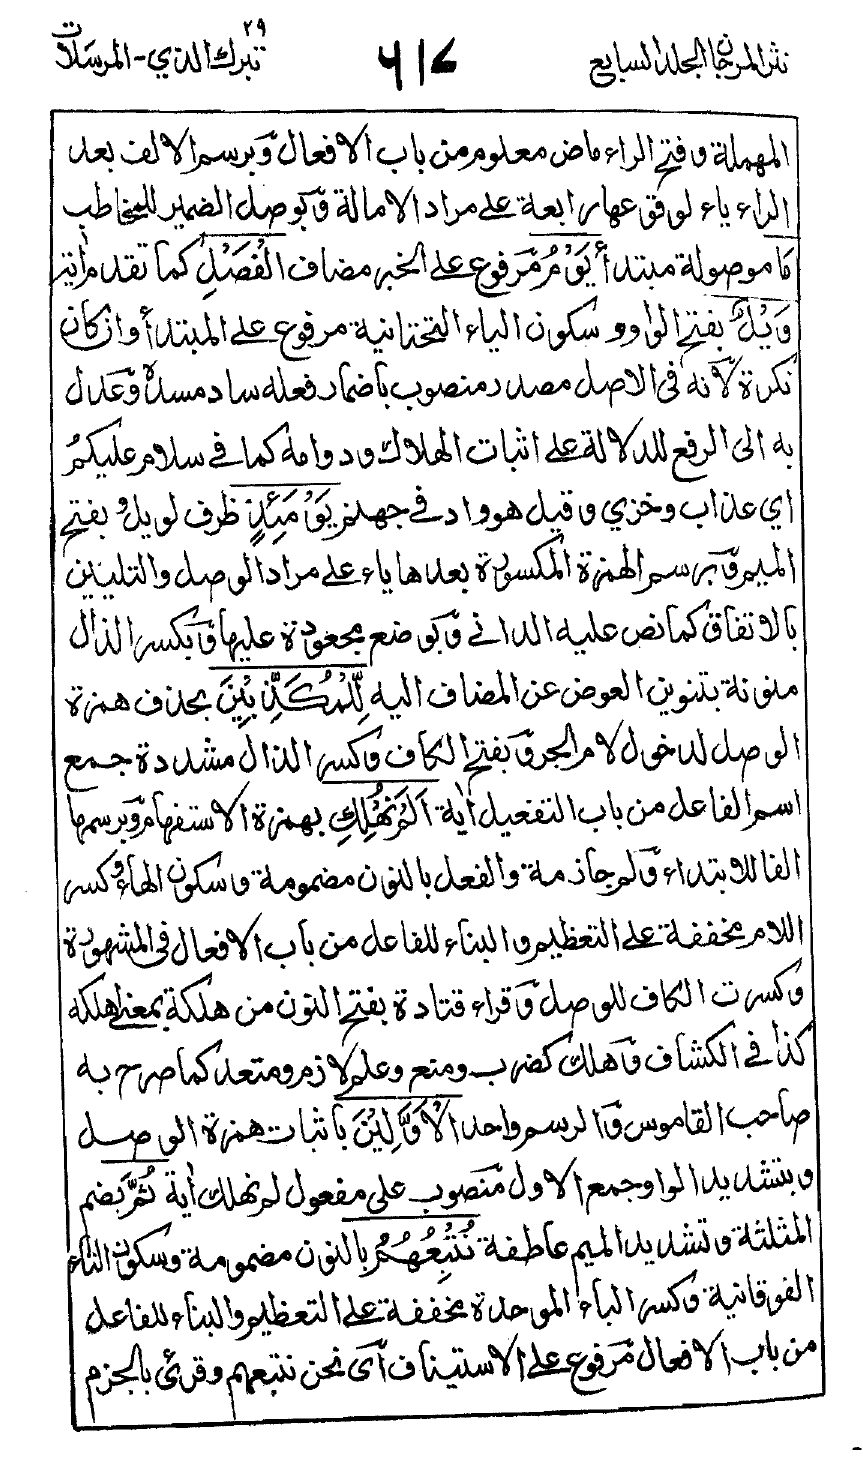 نثر المرجان المجلد السابع
٦١٧
تبرك الذي - المرسلات
٢٩
المهملة وفتح الراء ماض معلوم من باب الافعال وبرسم الالف بعد
الراء ياء لوقوعها رابعة على مراد الامالة وبوصل الضمير للمخاطب
ما موصولة مبتدأ يَوْمُ مرفوع على الخبر مضاف الْفَصْلِ كما تقدم اٰية
وَيْلٌ بفتح الواو وسكون الياء التحتانية مرفوع على المبتدأ وان كان
نكرة لانه فى الاصل مصدر منصوب باضمار فعله ساد مسده وعدل
به الى الرفع للدلالة على اثبات الهلاك ودوامه كما فے سلام عليكمُ
اي عذاب وخزي وقيل هو واد فے جهنم يَوْمَئِذٍ ظرف لويل وبفتح
الميم وبرسم الهمزة المكسورة بعدها ياء على مراد الوصل والتليين
بالاتفاق كما نص عليه الدانے وبوضع مجعودة عليها وبكسر الذال
منونة بتنوين العوض عن المضاف اليه لِّلْمُكَذِّبِيْنَ بحذف همزة
الوصل لدخول لام الجر وبفتح الكاف وكسر الذال مشددة جمع
اسم الفاعل من باب التفعيل اٰية اَلَمْ نُهْلِكِ بهمزة الاستفهام وبرسمها
الفا للابتداء ولم جازمة والفعل بالنون مضمومة وسكون الهاء وكسر
اللام مخففة على التعظيم والبناء للفاعل من باب الافعال فى المشهورة
وكسرت الكاف للوصل وقراء قتادة بفتح النون من هلكة بمعنے اهلكه
كذا فے الكشاف وهلك كضرب ومنع وعلم لازم ومتعد كما صرح به
صاحب القاموس والرسم واحد الْاَوَّلِيْنَ باثبات همزة الوصل
وبتشديد الواو جمع الاول منصوب على مفعول لم نهلك اٰية ثُمَّ بضم
المثلثة وتشديد الميم عاطفة نُتْبِعُهُمُ بالنون مضمومة وسكون التاء
الفوقانية وكسر الباء الموحدة مخففة على التعظيم والبناء للفاعل
من باب الافعال مرفوع على الاستيناف اى نحن نتبعهم وقرئ بالجزم